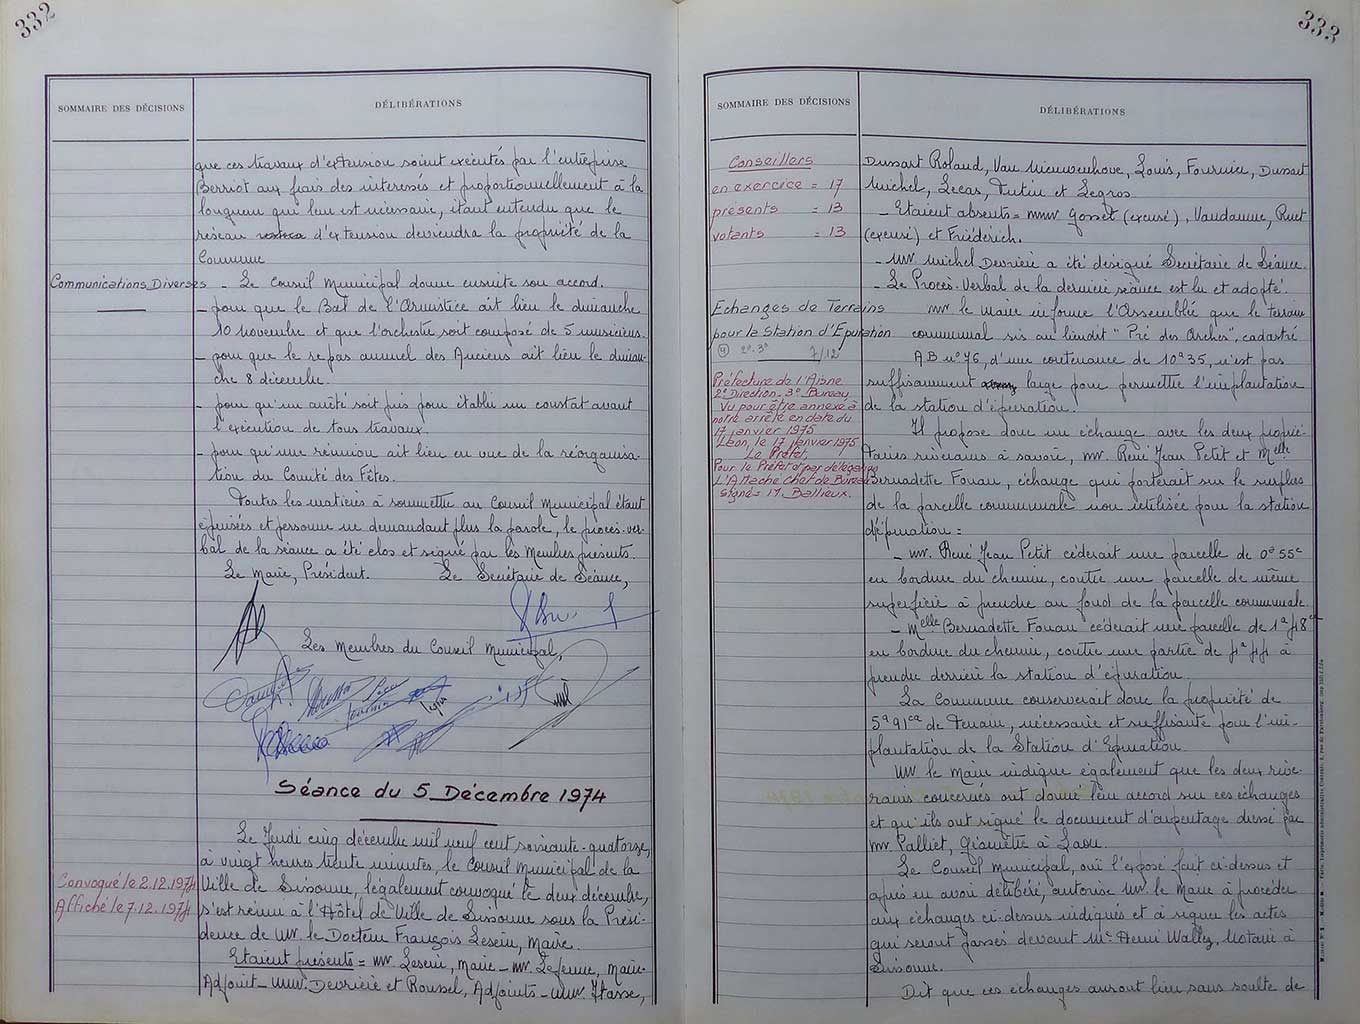 332
SOMMAIRE DES DÉCISIONS
DÉLIBÉRATIONS
que ces travaux d'extension soient exécutés par l'entreprise
Berriot aux frais des interessés et proportionnellement à la
longueur qui leur est nécessaire, étant entendu que le
réseau d'extension deviendra la propriété de la
Commune
Communications Diverses
- Le Conseil Municipal donne ensuite son accord.
- pour que le Bal de l'Armistice ait lieu le dimanche
10 Novembre et que l'orchestre soit composé de 5 musiciens.
- pour que le repas annuel des Anciens ait lieu le diman-
che 8 décembre.
- pour qu'un arrêté soit pris pour établir un constat avant
l'exécution de tous travaux.
- pour qu'une réunion ait lieu en vue de la réorganisa-
tion du Comité des Fêtes.
Toutes les matières à soumettre au Conseil Municipal étant
épuisées et personne ne demandant plus la parole, le procès-ver-
bal de la séance a été clos et signé par les Membres présents.
Le Maire, Président. Le Secrétaire de Séance,
Les Membres du Conseil Municipal,
Séance du 5 Décembre 1974
Le Jeudi cinq décembre mil neuf cent soixante-quatorze,
à vingt heures trente minutes, le Conseil Municipal de la
Convoqué le 2.12.1974
Ville de Sissonne, légalement convoqué le deux décembre,
Affiché le 7.12.1974
s'est réuni à l'Hôtel de Ville de Sissonne sous la Prési-
dence de Mr. le Docteur François Leseur, Maire.
Etaient présents = Mr. Leseur, Maire - Mr. Lejeune, Maire-
Adjoint - MM. Devrière et Roussel, Adjoints - MM. Hasse,
333
SOMMAIRE DES DÉCISIONS
DÉLIBÉRATIONS
Conseillers
en exercice = 17
présents = 13
votants = 13
Dussart Roland, Van Nieuwenhove, Louis, Fournier, Dussart
Michel, Lecas, Tutin et Legros.
- Etaient absents = MMrs Gosset (excusé), Vaudanne, Ruet
(excusé) et Friéderich.
- Mr Michel Devrière a été désigné Secrétaire de Séance.
- Le Procès-Verbal de la dernière séance est lu et adopté.
Echanges de Terrains
pour la Station d'Epuration
4 2°.3° 7/12
Mr le Maire informe l'Assemblée que le terrain
communal sis au lieudit "Pré des Arches", cadastré
AB n° 76, d'une contenance de 10a35, n'est pas
suffisamment large pour permettre l'implantation
de la station d'épuration.
Préfecture de l'Aisne
2° Direction. 3° Bureau
Vu pour être annexé à
notre arrêté en date du
17 janvier 1975
Laon, le 17 janvier 1975
Le Préfet,
Pour le Préfet et par délégation
L'Attaché Chef de Bureau
Signé = M. Ballieux.
Il propose donc un échange avec les deux proprié-
taires riverains à savoir, Mr. René Jean Petit et Melle
Bernadette Fouan, échange qui porterait sur le surplus
de la parcelle communale non utilisée pour la station
d'épuration =
- Mr. René Jean Petit cèderait une parcelle de 0a 55c
en bordure du chemin, contre une parcelle de même
superficie à prendre au fond de la parcelle communale.
- Melle Bernadette Fouan cèderait une parcelle de 1a 48ca
en bordure du chemin, contre une partie de 4a 44 à
prendre derrière la station d'épuration.
La Commune conserverait donc la propriété de
5a 91ca de terrain, nécessaire et suffisante pour l'im-
plantation de la Station d'Epuration.
Mr le Maire indique également que les deux rive-
rains concernés ont donné leur accord sur ces échanges
et qu'ils ont signé le document d'arpentage dressé par
Mr. Palliet, Géomètre à Laon.
Le Conseil Municipal, ouï l'exposé fait ci-dessus et
après en avoir délibéré, autorise Mr. le Maire à procéder
aux échanges ci-dessus indiqués et à signer les actes
qui seront passés devant Me Henri Wallez, Notaire à
Sissonne.
Dit que ces échanges auront lieu sans soulte de